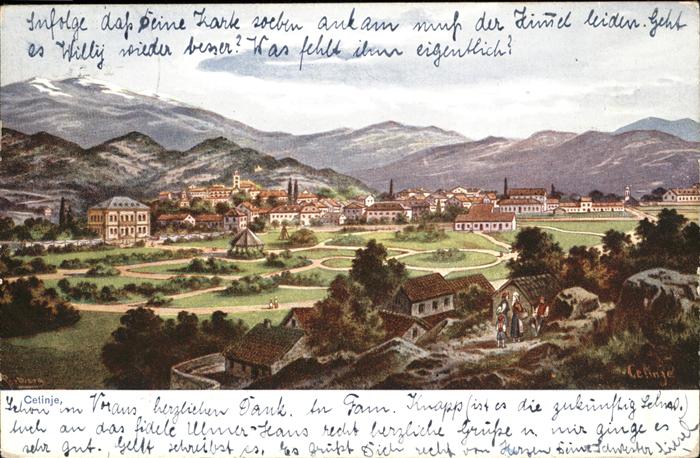 Infolge daß Deine Karte soeben ankam muß der Himmel leiden. Geht
es Willy wieder besser? Was fehlt ihm eigentlich?
Cetinje
Cetinje,
Schon im Voraus herzlichen Dank. An Fam. Knapp (ist es die zukünftig Schwa.
auch an das fidele Ulmer-Haus recht herzliche Grüße u. mir ginge es
sehr gut. Gellt schreibst es. Es grüßt Dich recht von Herzen Deine Schwester